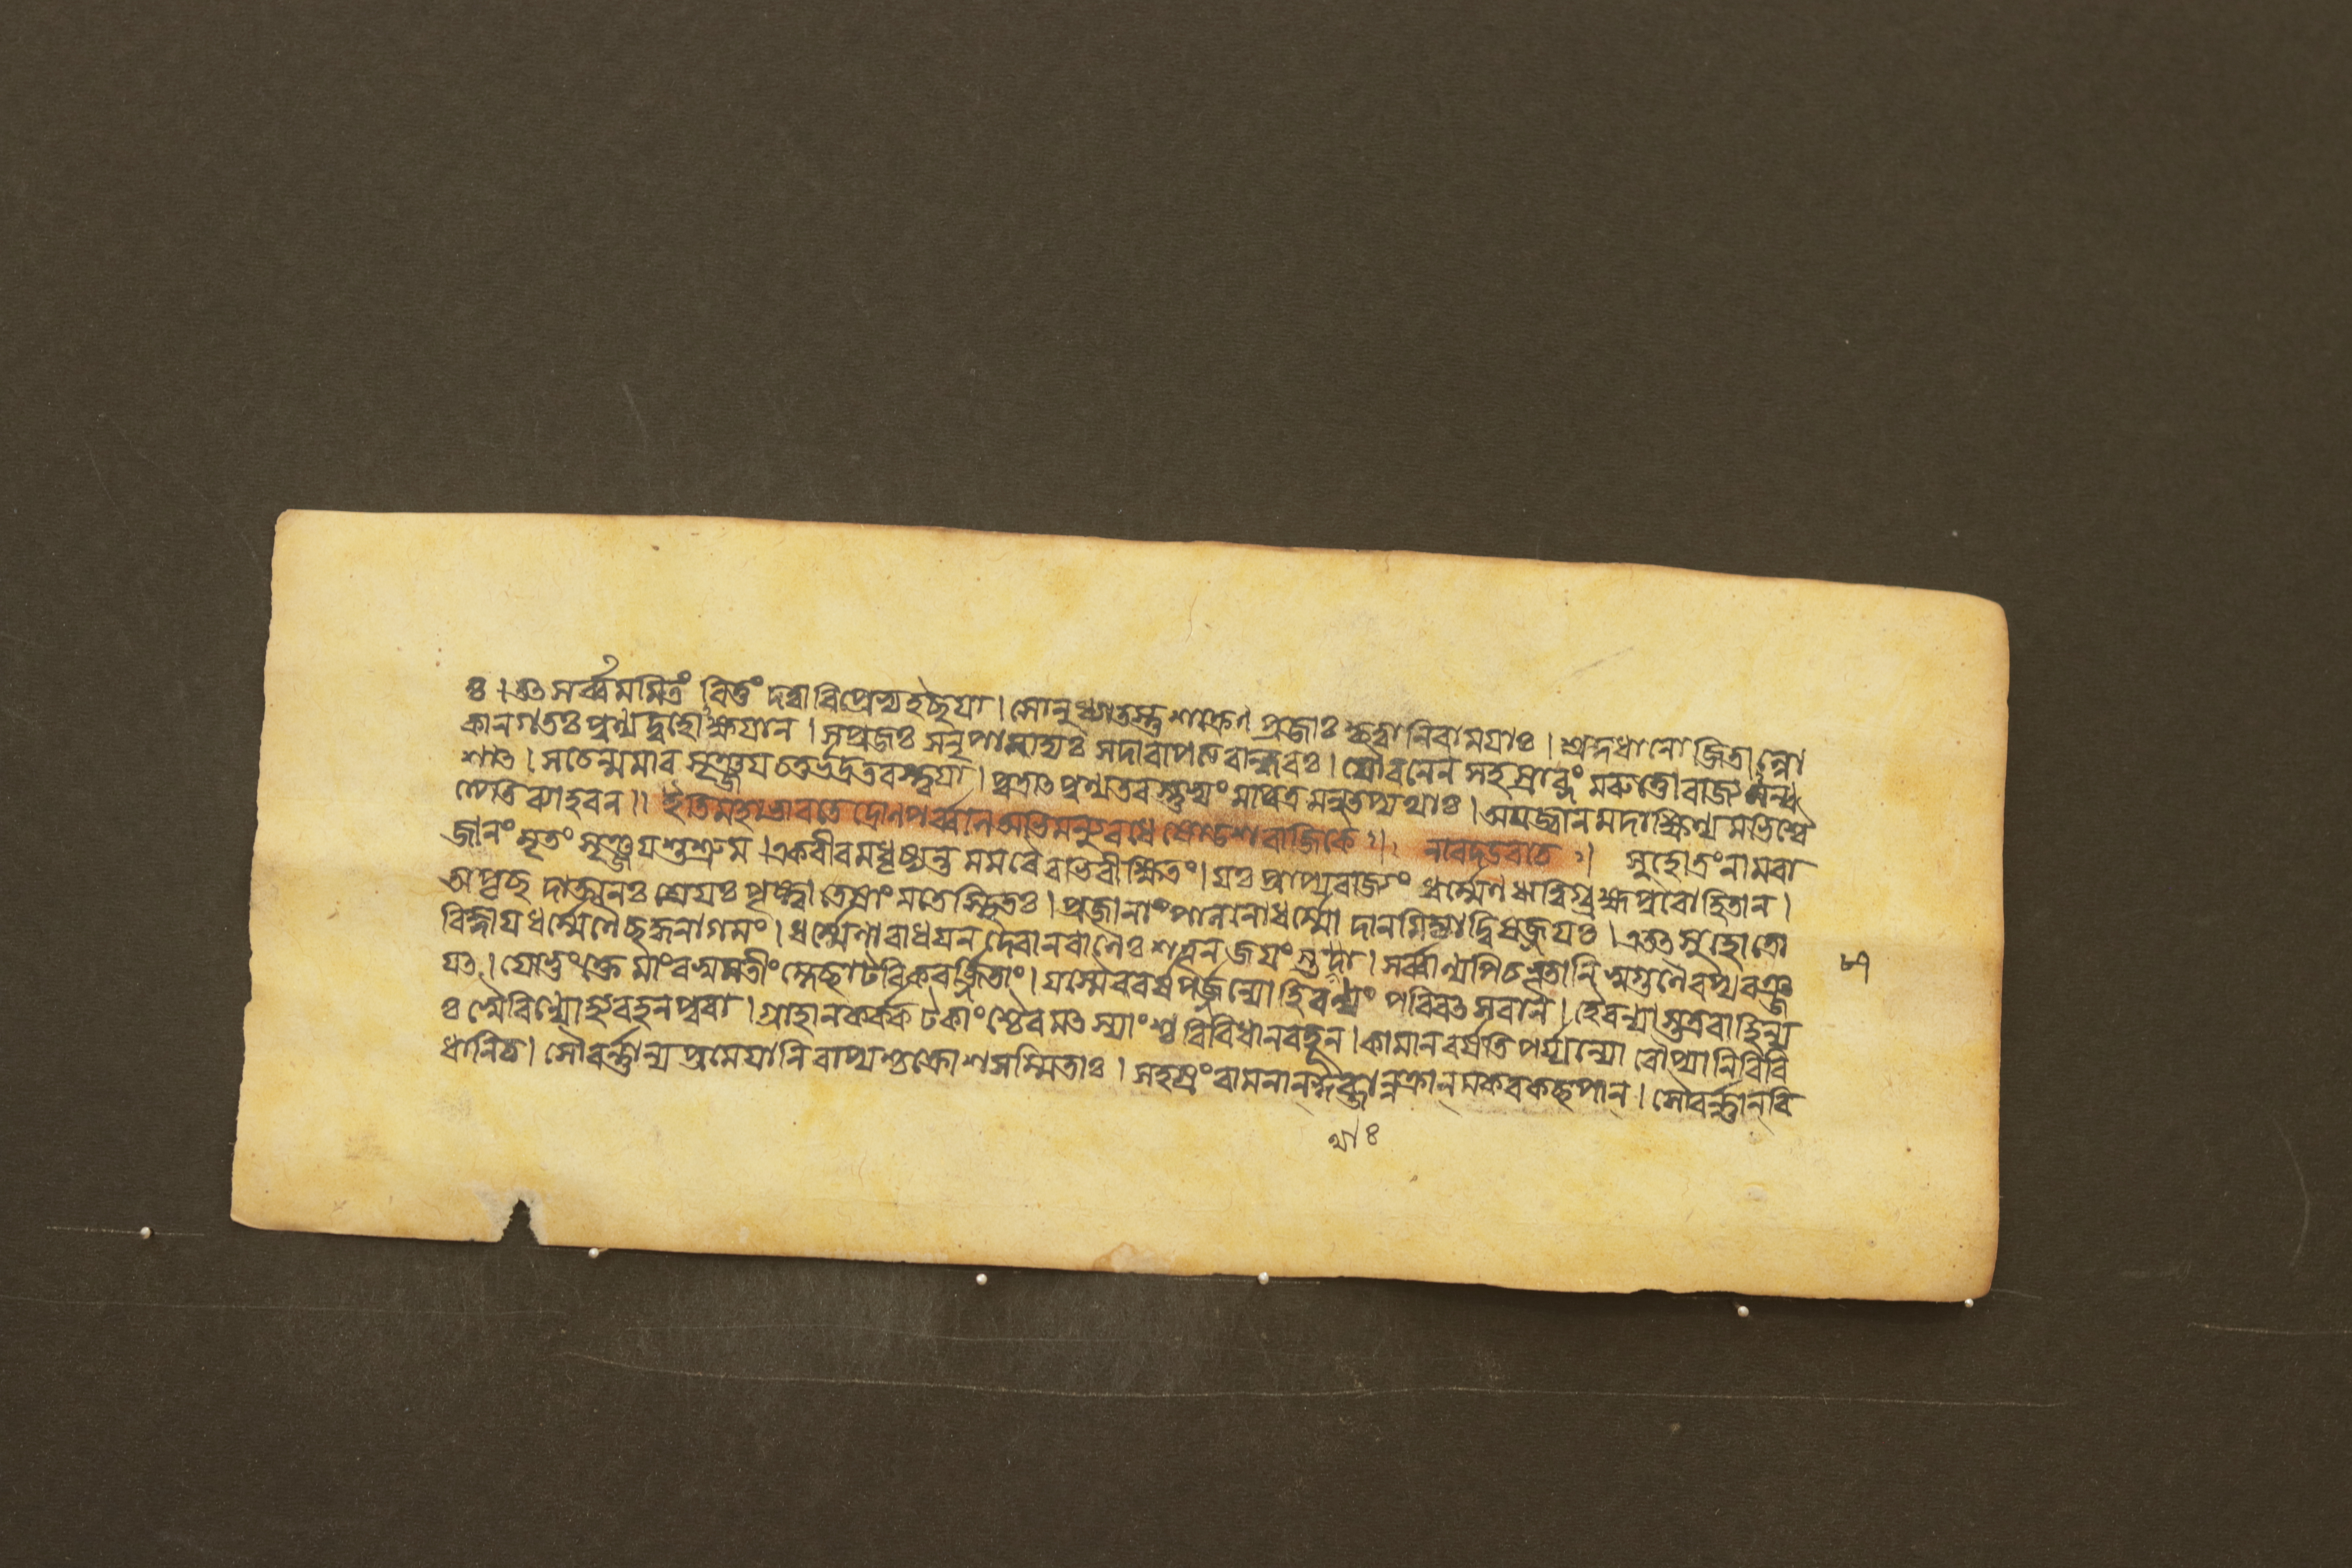 ঃ। তৎ সর্ব্বমমিত্রং বিত্তং দত্ত্বা বিপ্রেষ্বহচ্ছযা। সোনুধ্যাতস্তু শক্রেণ প্রজাঃ কৃত্বা নিরামযাঃ। শ্রদ্দধানো জিতান্লো
কান গতঃ পুণ্যদুহোক্ষযান। সপ্রজঃ সনৃপামাত্যঃ সদারাপত্যবান্ধবঃ। যৌবনেন সহস্রাব্দং মরুত্তো রাজ্যমন্ব
শাৎ। সচেন্মমার সৃঞ্জয চতুর্ভদ্রতরস্ত্বযা। পুত্রাৎ পুণ্যতরস্তুভ্যং মা পুত্রমনুতপ্যথাঃ। অযজ্বানমদাক্ষিণ্যমভিশ্বৈ
ত্যেতি ব্যাহরন॥ ইতি মহাভারতে দ্রোনপর্ব্বনি অভিমন্যুবধে ষোডশরাজিকে ঃ। নারদ উবাচ ঃ। সুহোত্রং নাম রা
জানং মৃতং সৃঞ্জয শুশ্রুম। একবীরমধৃষ্যন্তমমরৈরভিবীক্ষিতং। যঃ প্রাপ্য রাজ্যং ধর্ম্মেণ ঋত্বিগ্ব্রহ্মপুরোহিতান।
অপৃচ্ছদাত্মনঃ শ্রেযঃ পৃষ্ট্বা তেষাং মতে স্থিতঃ। প্রজানাং পালনো ধর্ম্মো দানমিজ্যা দ্বিষজ্জযঃ। এতৎ সুহোত্রো
বিজ্ঞায ধর্ম্মেণৈচ্ছদ্ধনাগমং। ধর্ম্মেণারাধযন দেবান বাণৈঃ শত্রূন জযংস্তথা। সর্ব্বাণ্যপি চ ভূতানি স্বগুণৈরপ্যরঞ্জ
যৎ। যোভুংক্তেমাং বসুমতীং ম্লেচ্ছাটবিকবর্জ্জিতাং। যস্মৈ ববর্ষ পর্জ্জন্যো হিরণ্যং পরিবৎসরান। হৈরণ্যাস্তত্র বাহিন্য
ঃ স্বৈরিণ্যো হ্যবহন পুরা। গ্রাহান কর্কটকাংশ্চৈব মৎস্যাংশ্চ বিবিধান বহূন। কামান বর্ষতি পর্জ্জন্যো রৌপ্যানি বিবি
ধানি চ। সৌবর্ণ্ণান্যপ্রমেযানি বাপ্যশ্চ ক্রোশসম্মিতাঃ। সহস্রং বামনান্ কুব্জান্নক্রান্ মকরকচ্ছপান্। সৌবর্ণ্ণান্ বি
থাঃ